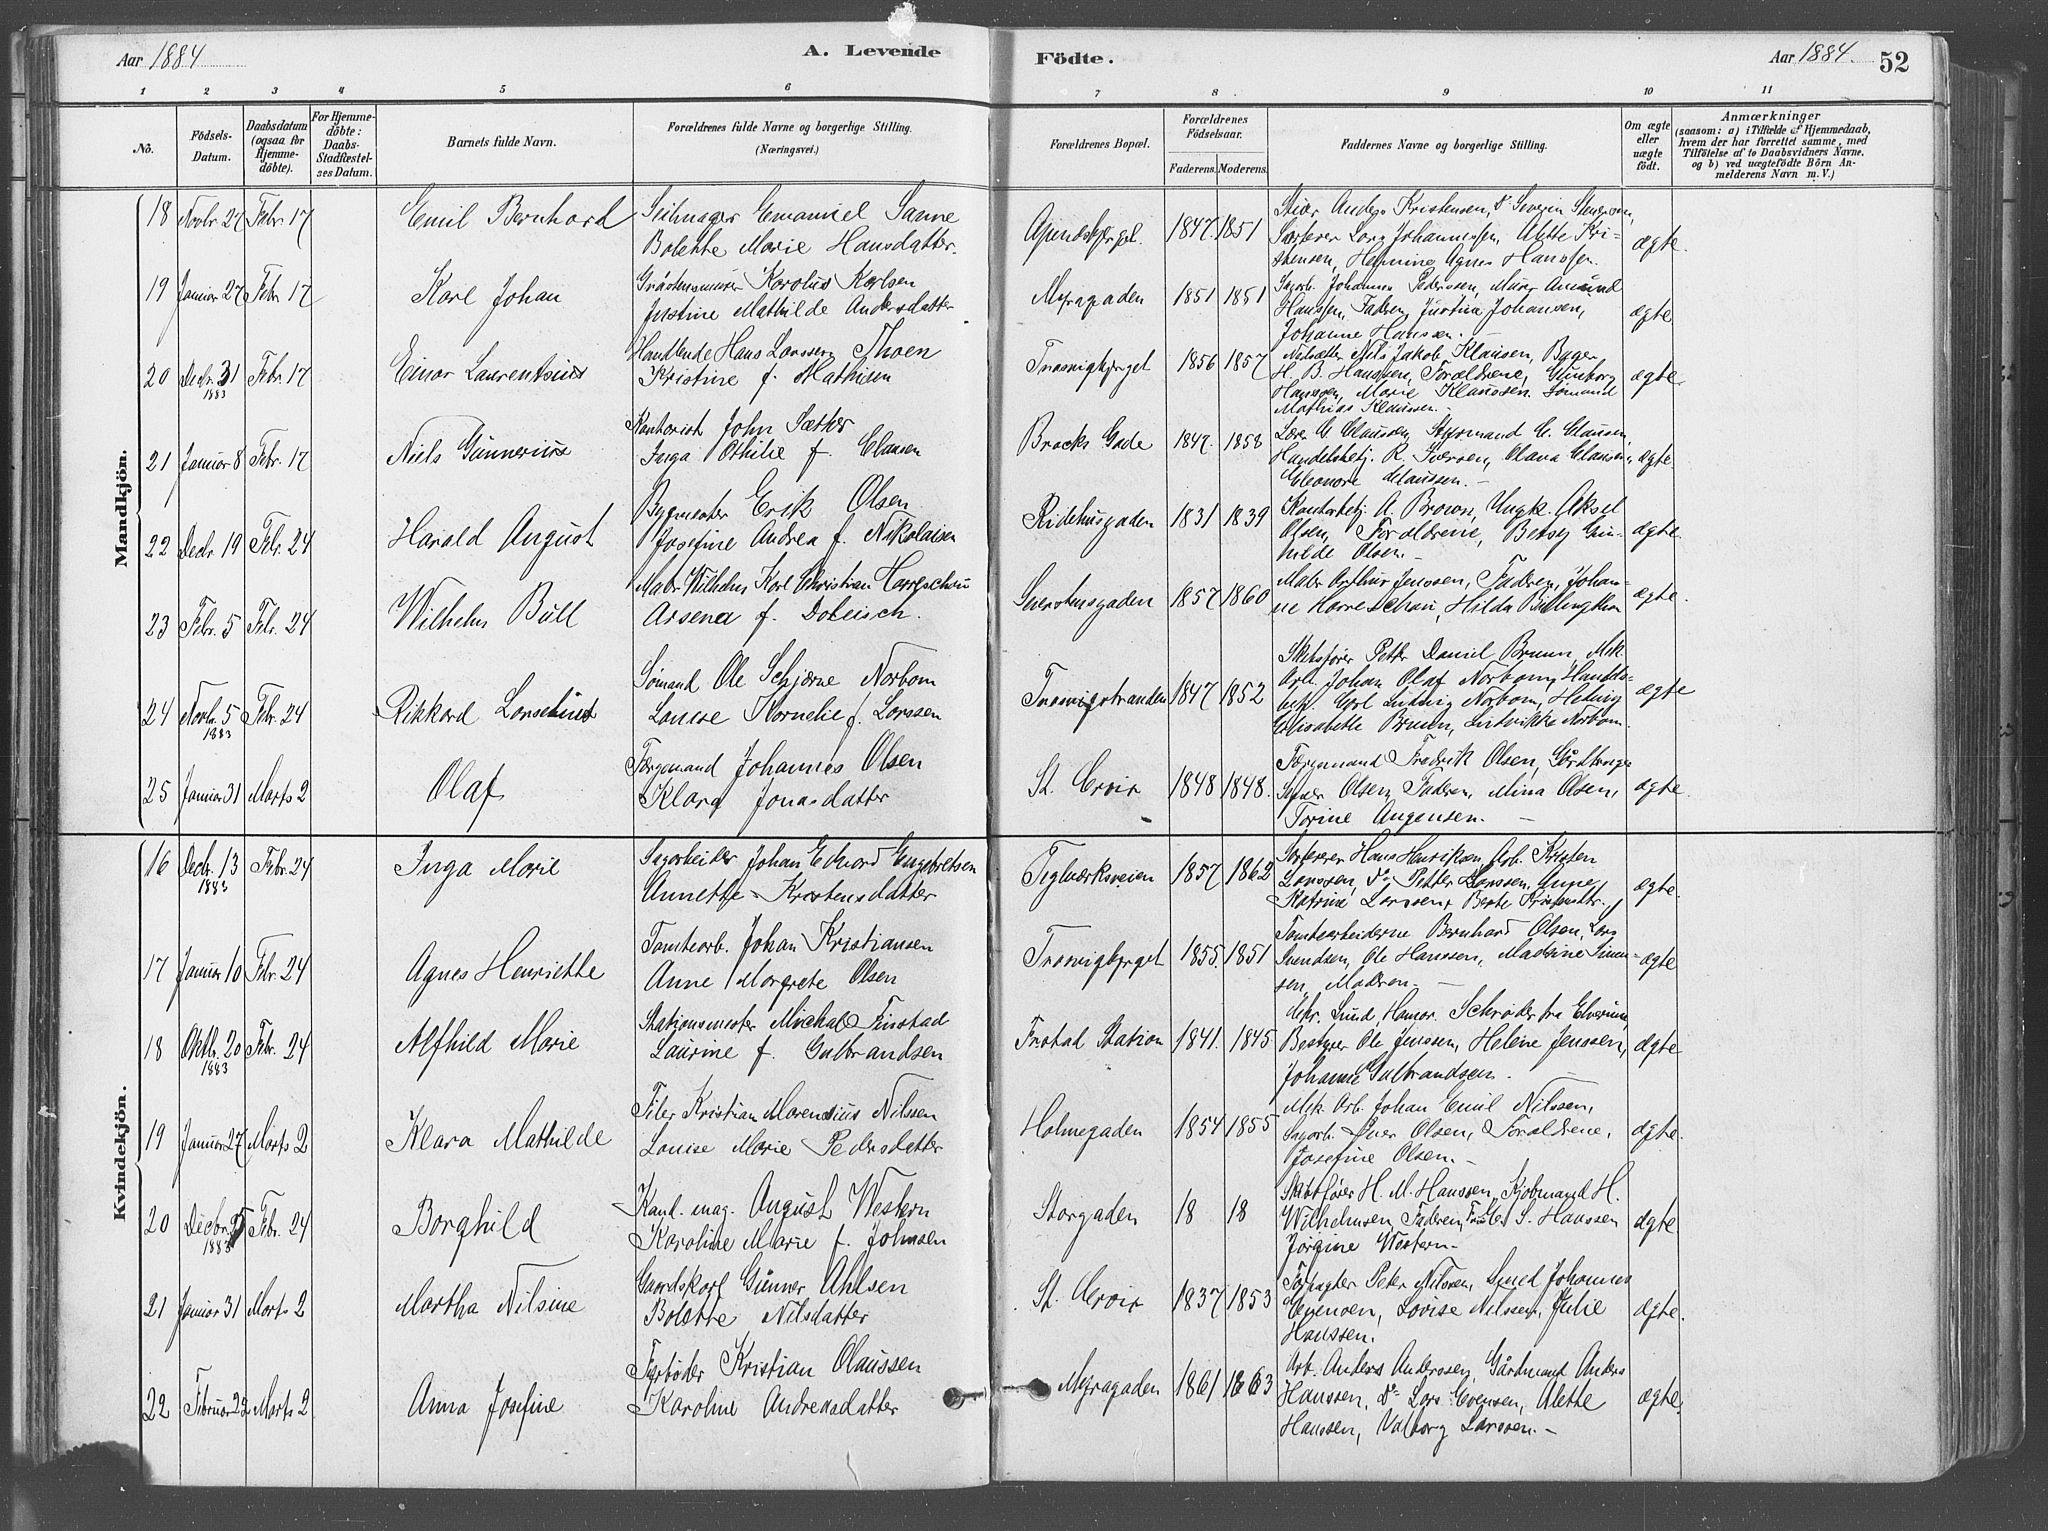 Aar 1884 A. Levende Födte. Aar 1884. 52
1 2 3 4 5 6 7 8 9 10 11
No.
Födsels-Datum.
Daabsdatum (ogsaa for Hjemme-döbte).
For Hjemme-döbte: Daabs-Stadfæstel-ses Datum.
Barnets fulde Navn.
Forældrenes fulde Navne og borgerlige Stilling. (Næringsvei.)
Forældrenes Bopæl.
Forældrenes Födselsaar.
Faderens. Moderens.
Faddernes Navne og borgerlige Stilling.
Om ægte eller uægte födt.
Anmærkninger
(saasom: a) i Tilfælde af Hjemmedaab, hvem der har forrettet samme, med Tilföielse af to Daabsvidners Navne, og b) ved uægtefödte Börn An-melderens Navn m. V.)
Mandkjön.
18 Novbr. 27 Febr. 17 Emil Bernhard Emanuel Sanne
Bolette Marie Hansdatter. 1847. 1851 Anders Kristensen, Severin
Johannessen, Alette Kri-
stensen, Hermine Agnes Hanssen. ægte.
19 Januar 27 Febr. 17 Karl Johan Karolus Karlsen
Justine Mathilde Andersdatter Myragaden 1851 1851 Sagarb. Johannes Pederssen, Murer Amund
Hanssen, Faderen, Justina Johansen,
Johanne Hanssen. ægte
20 Decbr. 31 1883 Febr. 17 Einar Laurentius Handlende Hans Larssen Thoen
Kristine f. Mathisen 1856 1857 Nils Jakob Klausen, Bager
H. B. Hanssen, Forældrene, Gunborg
Hanssen, Marie Klaussen. Sömand
Mathias Klaussen. ægte.
21 Januar 8 Febr. 17 Niels Gunnerius Kontorist John Sæther
Inga Othilie f. Clausen Brochs Gade 1847. 1858 Lærer G. Clausen, Styrmand C. Clausen,
Handelsbetj. R. Iversen, Olava Clausen,
Eleonore Claussen. ægte
22 Decbr. 19 Febr. 24 Harald August Bygmester Erik Olsen
Josefine Andrea f. Nikolaisen Ridehusgaden 1831 1839 Kontorbetj. A. Brown, Ungk. Aksel
Olsen, Forældrene, Betsey Gun-
hilde Olsen. ægte.
23 Febr. 5 Febr. 24 Wilhelm Bull Maler Wilhelm Karl Christian Harreschou
Arsena f. 1857 1860 Maler Arthur Jenssen, Faderen, Johan-
ne Harreschou, Hilda ægte.
24 Novbr. 5 1883 Febr. 24 Rikkard Lorentius Sömand Ole Schjerne Norbom
Louise Kornelie f. Larssen 1847 1852 Skibsförer Petter Daniel Bruun, Mek.
Arb. Johan Olaf Norbom, Handels-
betj. Carl Ludvig Norbom, Helvig
Elisabeth Bruun, Ludvikke Norbom. ægte
25 Januar 31 Marts 2 Olaf Færgemand Johannes Olsen
Klara Jonasdatter St. Croix 1848 1848. Færgemand Fredrik Olsen,
Olsen, Faderen, Mina Olsen,
Torine Augensen. ægte.
Kvindekjön.
16 Decbr. 13 1883 Febr. 24 Inga Marie Sagarbeider Johan Edvard Engebretsen
Annette Kristensdatter Teglværksveien 1857 1862 Sorterer Hans Henriksen, Arb. Kristen
Larssen, do Petter Larssen, Anne
Katrine Larssen, Berte ægte.
17 Januar 10 Febr. 24 Agnes Henriette Tomtearb. Johan Kristiansen
Anne Margrete Olsen 1855. 1851 Tomtearbeiderne Bernhard Olsen, Lars
Svendsen, Ole Hanssen, Madrine Simen-
sen, Modren. ægte
18 Oktbr. 20 1883 Febr. 24 Alfhild Marie Stationsmester Michal Finstad
Laurine f. Gulbrandsen Station 1841. 1845 Lund, Hamar. Schröder fra Elverum,
Bestyrer Ole Jenssen, Helene Jenssen,
Johanne Gulbrandsen. ægte
19 Januar 27 Marts 2 Klara Mathilde Filer Kristian Marensius Nilssen
Louise Marie Pedersdatter Holmegaden 1854 1855 Mek. Arb. Johan Emil Nilssen,
Sagarb. Iver Olsen, Forældrene,
Josefine Olsen. ægte.
20 Decbr. 1883 Febr. 24 Borghild Kand. mag. August Western
Karoline Marie f. Johnsen Storgaden 18 18 Skibsförer H. M. Hanssen, Kjöbmand H.
Wilhelmsen, Faderen, S. Hanssen
Jörgine Western. ægte
21 Januar 31 Marts 2 Martha Nilsine Gaardskarl Gunner Ahlsen
Bolette Nilsdatter St. Croix 1837 1853 Forpagter Peter Nilssen, Smed Johannes
Evensen, Lovise Nilssen, Julie
Hanssen. ægte.
22 Februar 22 Marts 2 Anna Josefine Kristian Olaussen
Karoline Andreasdatter Myragaden 1861 1863 Arb. Anders Anderssen, Gårdmand Anders
Hanssen, do Lars Evensen, Alette
Hanssen, Valborg Larssen. ægte.